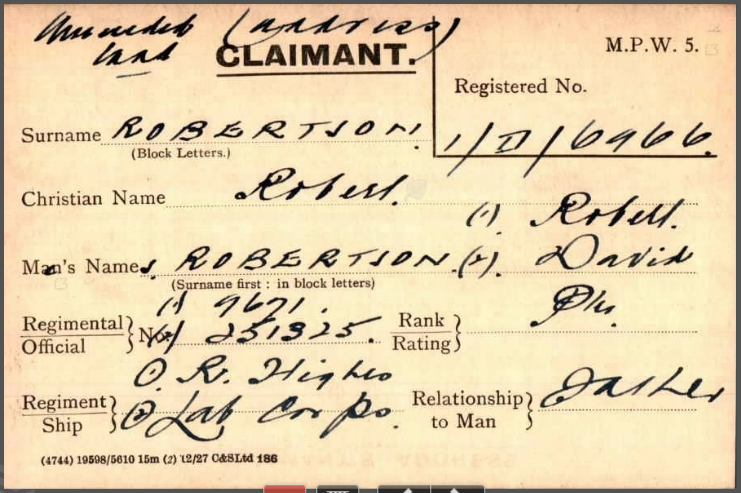 Amended (address)
Card CLAIMANT. M.P.W. 5.
Registered No.
Surname ROBERTSON. 1/D/6966.
(Block Letters.)
Christian Name Robert.
(1) Robert.
Man's Names, ROBERTSON. (2). David
(Surname first : in block letters)
(1) 9671. Pte.
Regimental Official } No. (2) 251325. Rank Rating }
(1) R. Highrs
Regiment Ship } (2) Lab Corps. Relationship to Man } Father
(4744) 19598/5610 15m (2) 12/27 C&SLtd 186